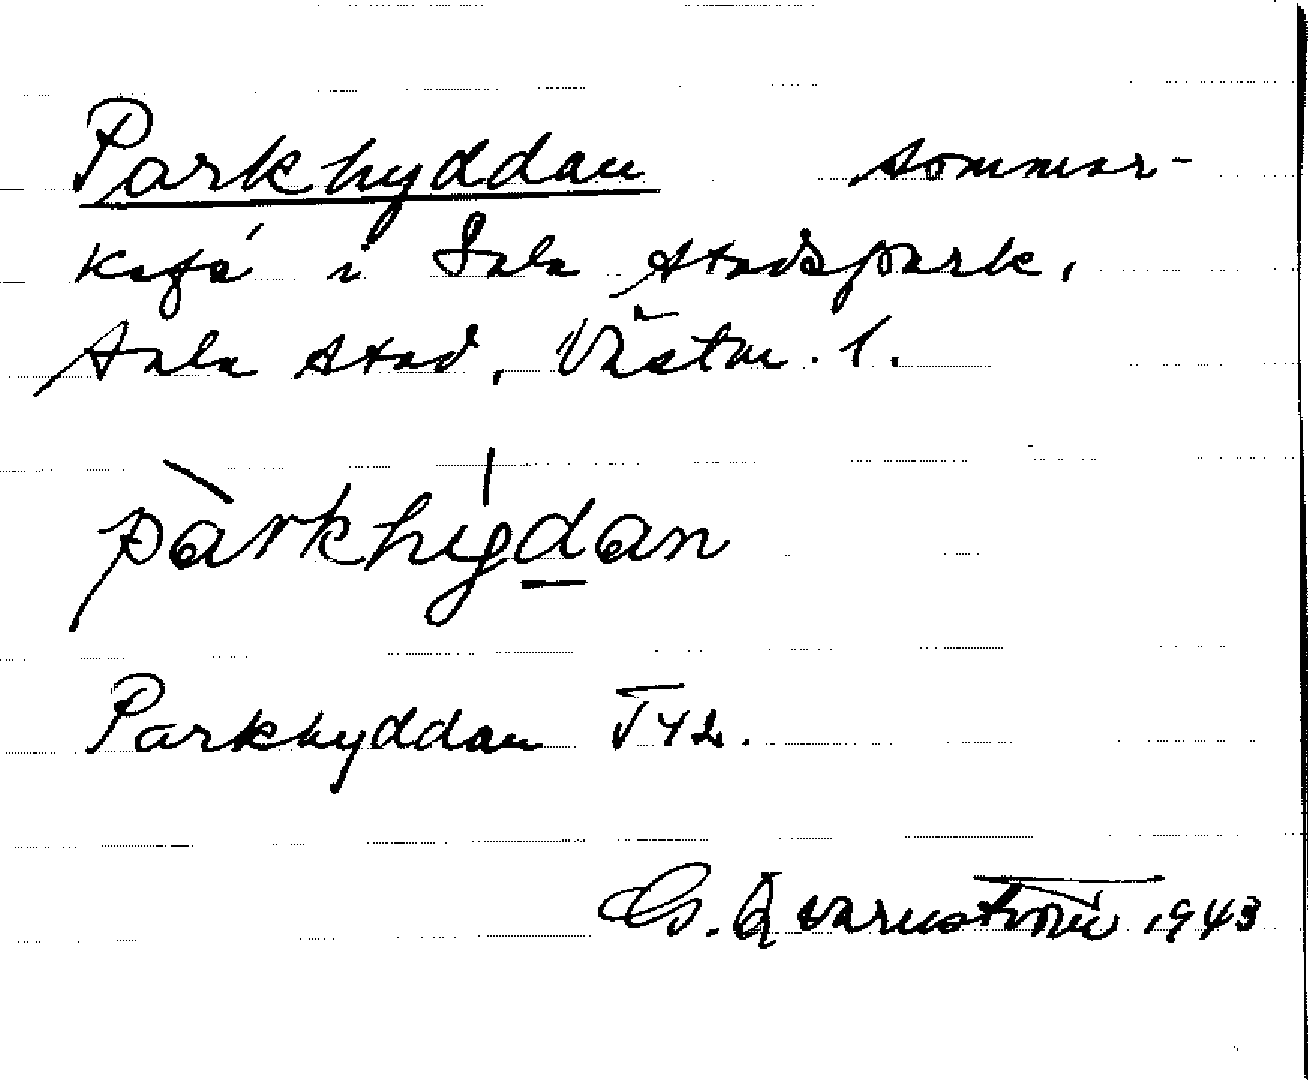 Parkhyddan sommar-
kafé i Sala stadspark,
Sala stad, Västm. l.
pàrkhy̍d̲an
Parkhyddan T42.
G. Qvarnström 1943